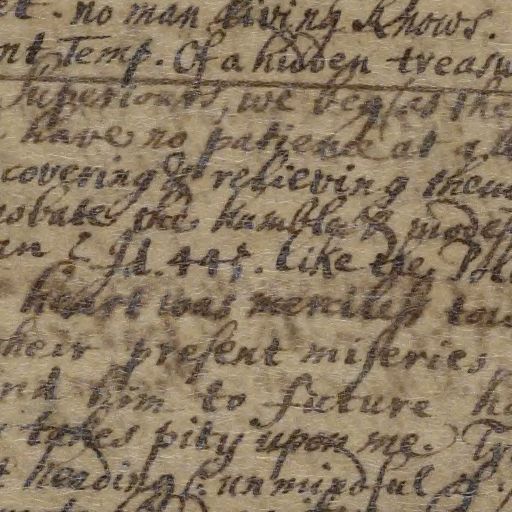 no man living knows.
nt Temp. Of a hidden treasu
Superiours, we beg as the
have no patience at all
covering & relieving them
probate the humble & modest
an? Id. 445. like the
heart was merciless tow
their present miseries,
nd him to future ha
takes pity upon me.
t heading: unmindful of